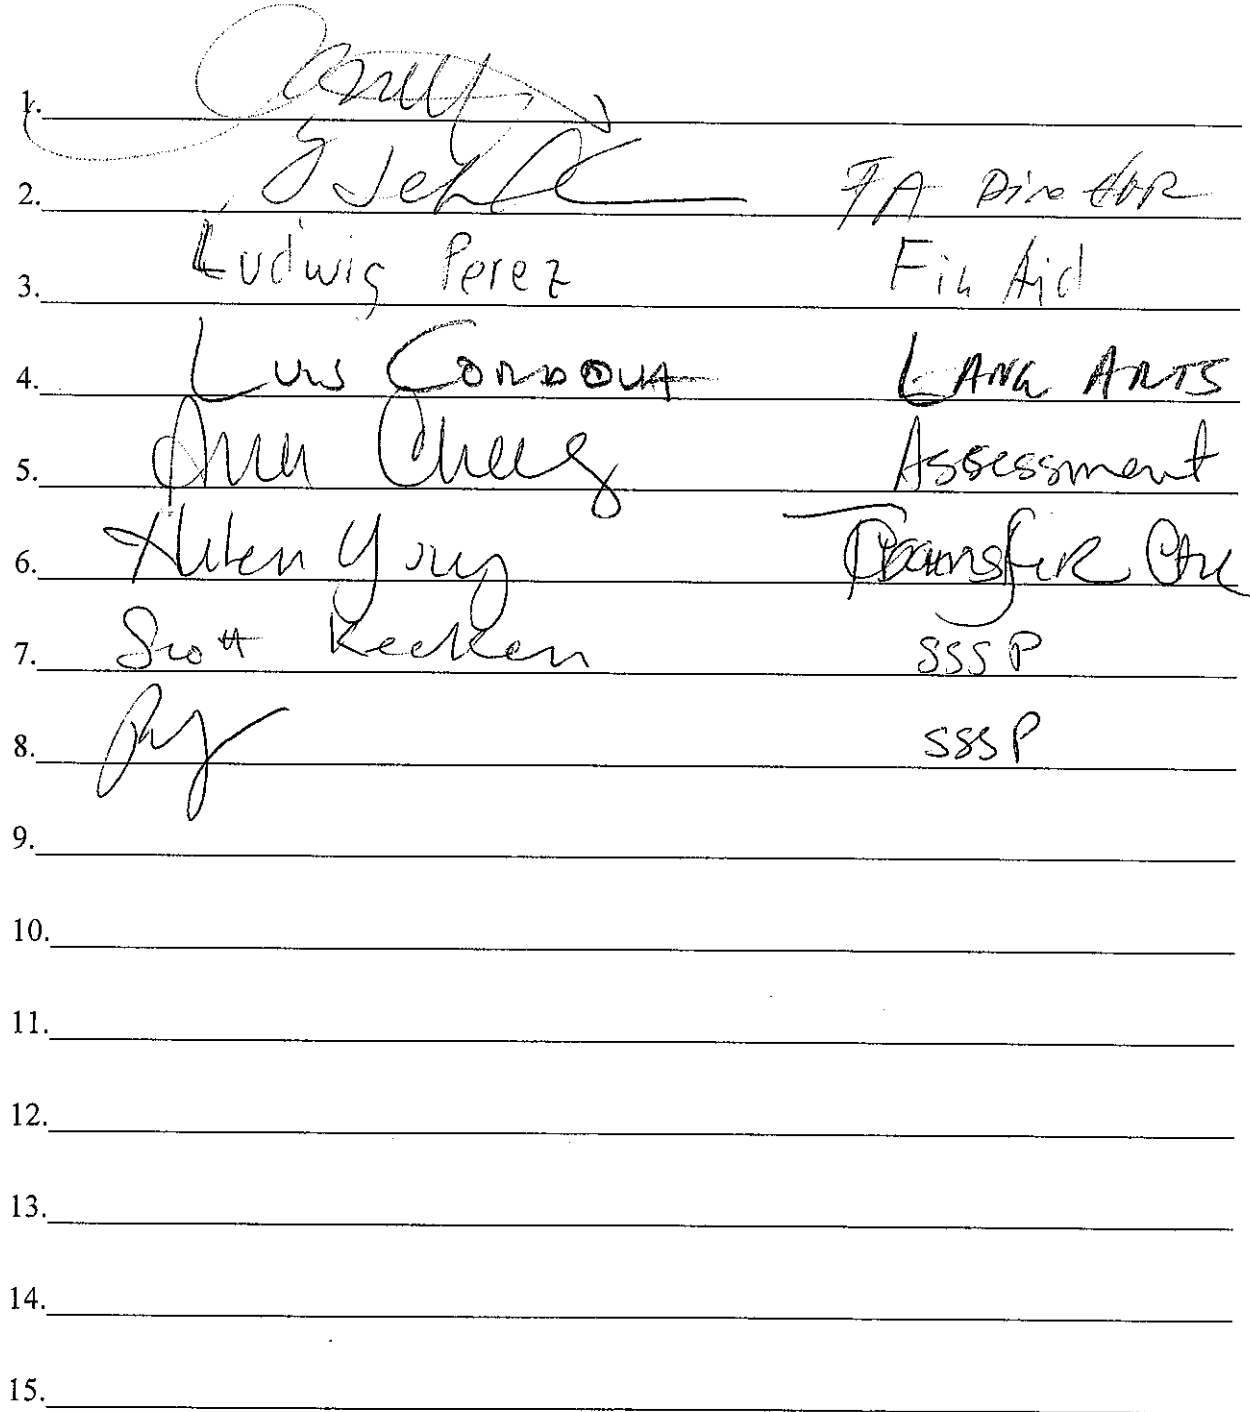 1.
2. FA Director
3. Ludwig Perez Fin Aid
4. Luis CORDOVA LANG ARTS
5. Ann Cheng Assessment
6. Helen Young Transfer Ctr
7. Scott SSSP
8. SSSP
9.
10.
11.
12.
13.
14.
15.